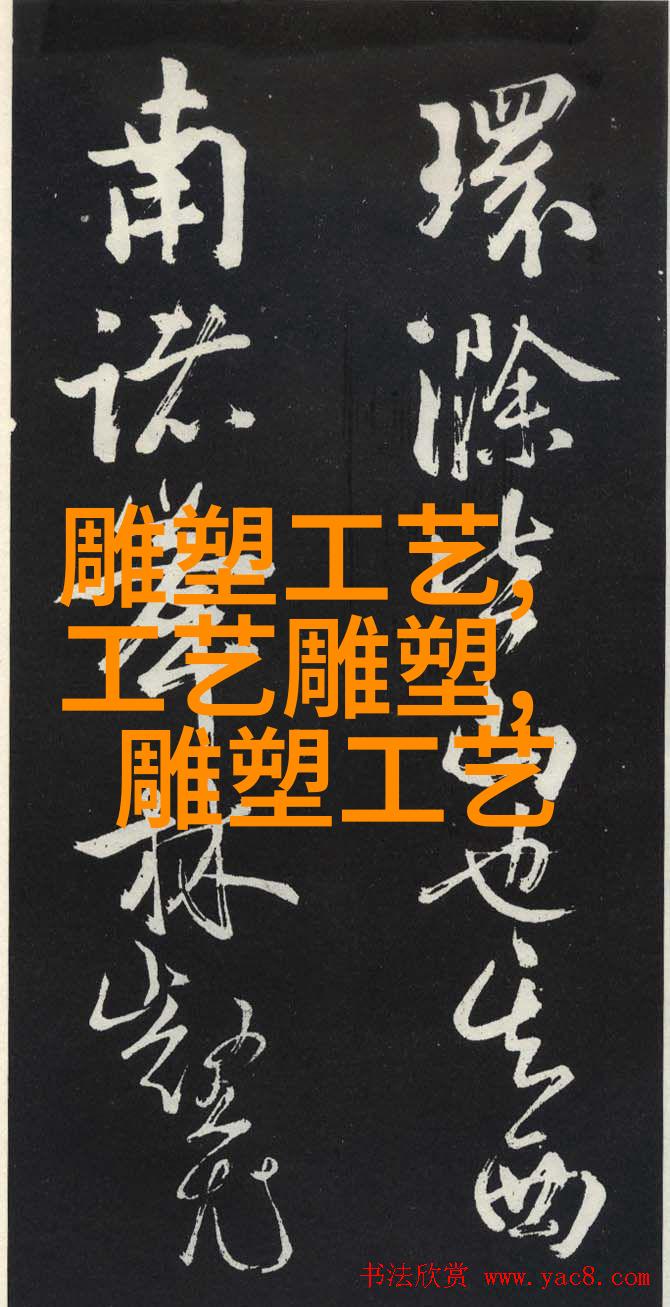 環滁皆山也其西
南諸峯林壑尤
雕塑工艺,
工艺雕塑,
雕塑工艺
书法欣赏 www.yac8.com